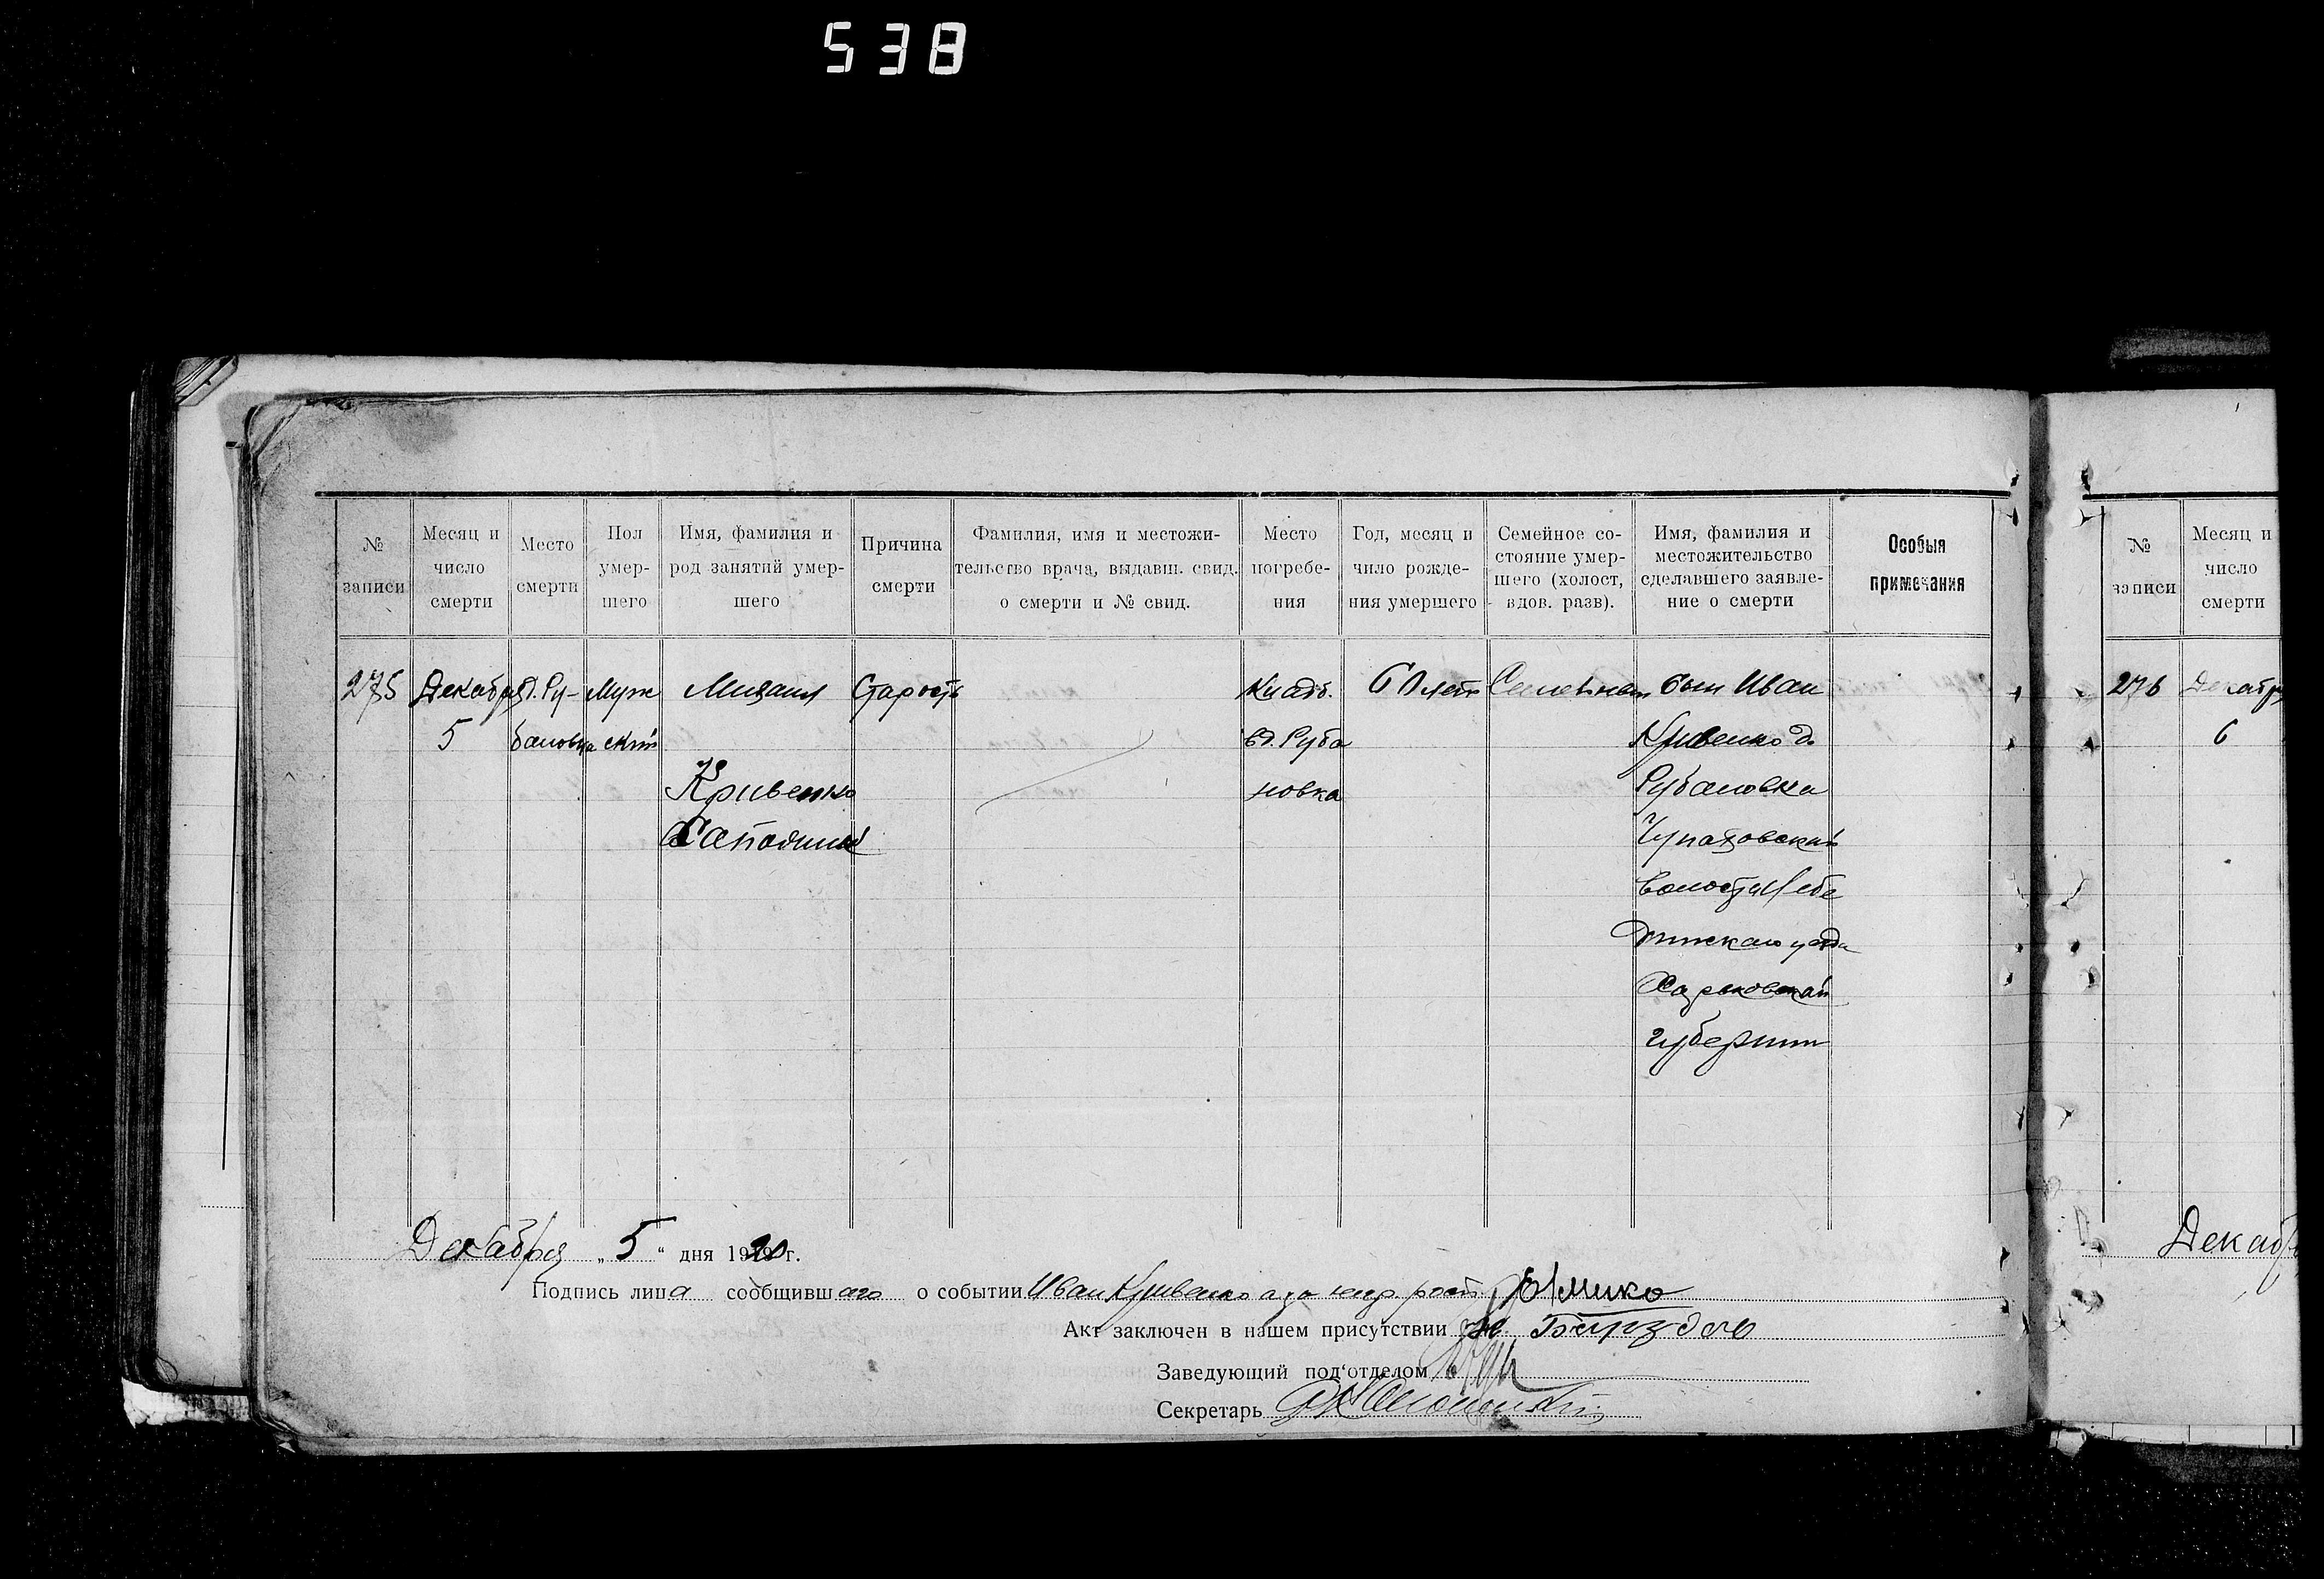 538
№ записи
Месяц и число смерти
Место смерти
Пол умер- шего
Имя, фамилия и род занятий умер- шего
Причина смерти
Фамилия, имя и местожи- тельство врача, выдавш. свид. о смерти и № свид.
Место погребе- ния
Год, месяц и чило рожде- ния умершего
Семейное со- стояние умер- шего (холост, вдов. разв).
Имя, фамилия и местожительство сделавшего заявле- ние о смерти
Особыя примечания
275
Декабря
5
д. Ру-
бановка
Муж
ской
Михаил
Кривенко
Старость
Кладб.
в д. Руба
новка
60 лет
Семейный
сын Иван
Кривенко д.
Рубановка
волости Лебе
динскаго уезда
Харьковской
губернии
Декабря „ 5 “ дня 1920 г.
Подпись лица сообщившаго о событии Иван Кривенко а за негр. росп.
Акт заключен в нашем присутствии
Заведующий под‘отделом
Секретарь
№ записи
Месяц и число смерти
276
Декабря
6
Декабр